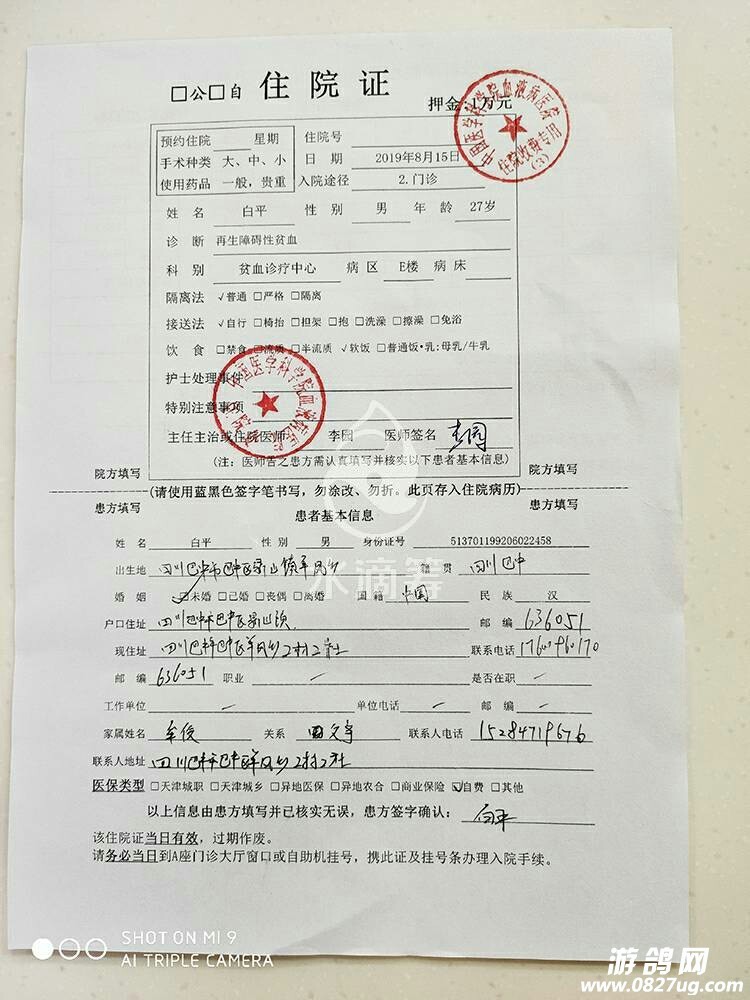 □公□自 住院证
押金 1万元
中国医学科学院血液病医院
住院收费专用
(3)
预约住院 星期 住院号
手术种类 大、中、小 日期 2019年8月15日
使用药品 一般，贵重 入院途径 2.门诊
姓名 白平 性别 男 年龄 27岁
诊断 再生障碍性贫血
科别 贫血诊疗中心 病区 E楼 病床
隔离法 √普通 □严格 □隔离
接送法 √自行 □椅抬 □担架 □抱 □洗澡 □擦澡 □免浴
饮食 □禁食 □流质 □半流质 √软饭 □普通饭·乳:母乳/牛乳
护士处理事件
特别注意事项
中国医学科学院血液病医院
主任主治或住院医师 李园 医师签名 李园
(注：医师告之患方需认真填写并核实以下患者基本信息)
院方填写 院方填写
(请使用蓝黑色签字笔书写，勿涂改、勿折。此页存入住院病历)
患方填写 患方填写
患者基本信息
姓名 白平 性别 男 身份证号 513701199206022458
出生地 四川巴中市巴中区 籍贯 四川巴中
婚姻 □未婚 □已婚 □丧偶 □离婚 国籍 中国 民族 汉
户口住址 四川巴中市巴中区 邮编 636051
现住址 四川巴中市巴中区 2村2社 联系电话
邮编 636051 职业 — 是否在职 —
工作单位 — 单位电话 — 邮编 —
家属姓名 牟俊 关系 联系人电话 15284719676
联系人地址 四川巴中市巴中区 2村2社
医保类型 □天津城职 □天津城乡 □异地医保 □异地农合 □商业保险 ☑自费 □其他
以上信息由患方填写并已核实无误，患方签字确认： 白平
该住院证当日有效，过期作废。
请务必当日到A座门诊大厅窗口或自助机挂号，携此证及挂号条办理入院手续。
水滴筹
SHOT ON MI 9
AI TRIPLE CAMERA
游鸽网
www.0827ug.com